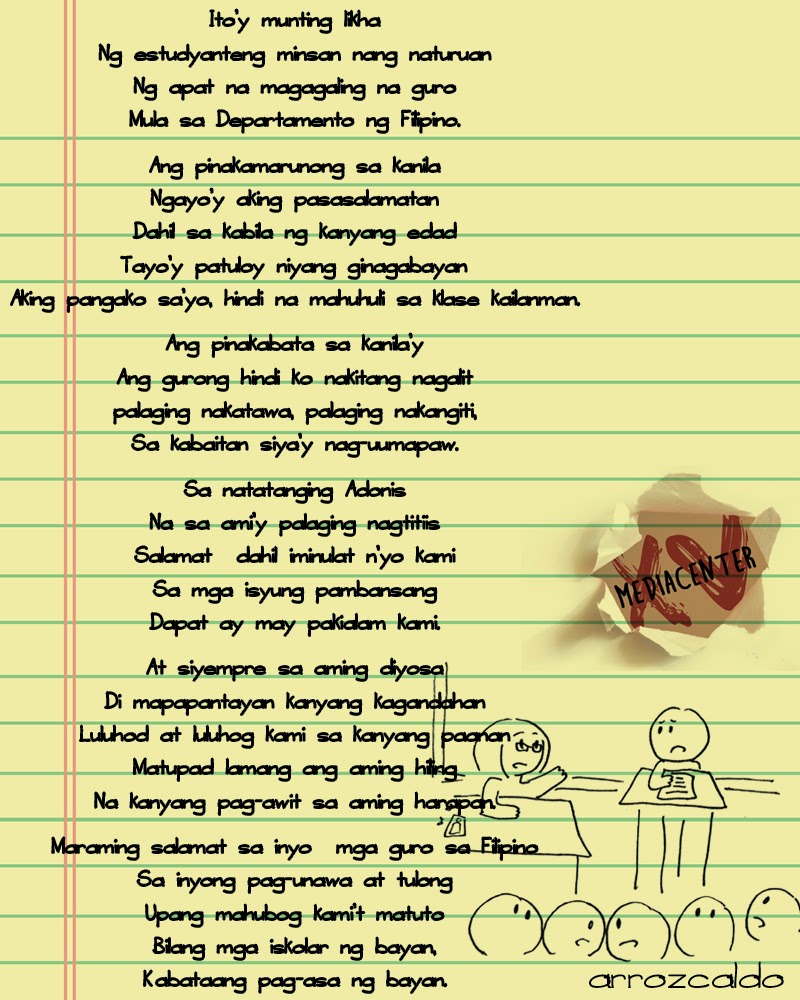 Ito'y munting likha
Ng estudyanteng minsan nang naturuan
Ng apat na magagaling na guro
Mula sa Departamento ng Filipino.
Ang pinakamarunong sa kanila
Ngayo'y aking pasasalamatan
Dahil sa kabila ng kanyang edad
Tayo'y patuloy niyang ginagabayan
Aking pangako sa'yo, hindi na mahuhuli sa klase kailanman.
Ang pinakabata sa kanila'y
Ang gurong hindi ko nakitang nagalit
palaging nakatawa, palaging nakangiti,
Sa kabaitan siya'y nag-uumapaw.
Sa natatanging Adonis
Na sa ami'y palaging nagtitiis
Salamat dahil iminulat n'yo kami
Sa mga isyung pambansang
Dapat ay may pakialam kami.
At siyempre sa aming diyosa
Di mapapantayan kanyang kagandahan
Luluhod at luluhog kami sa kanyang paanan
Matupad lamang ang aming hiling
Na kanyang pag-awit sa aming harapan.
Maraming salamat sa inyo mga guro sa Filipino
Sa inyong pag-unawa at tulong
Upang mahubog kami't matuto
Bilang mga iskolar ng bayan,
Kabataang pag-asa ng bayan.
XSV
MEDIACENTER
arrozcaldo